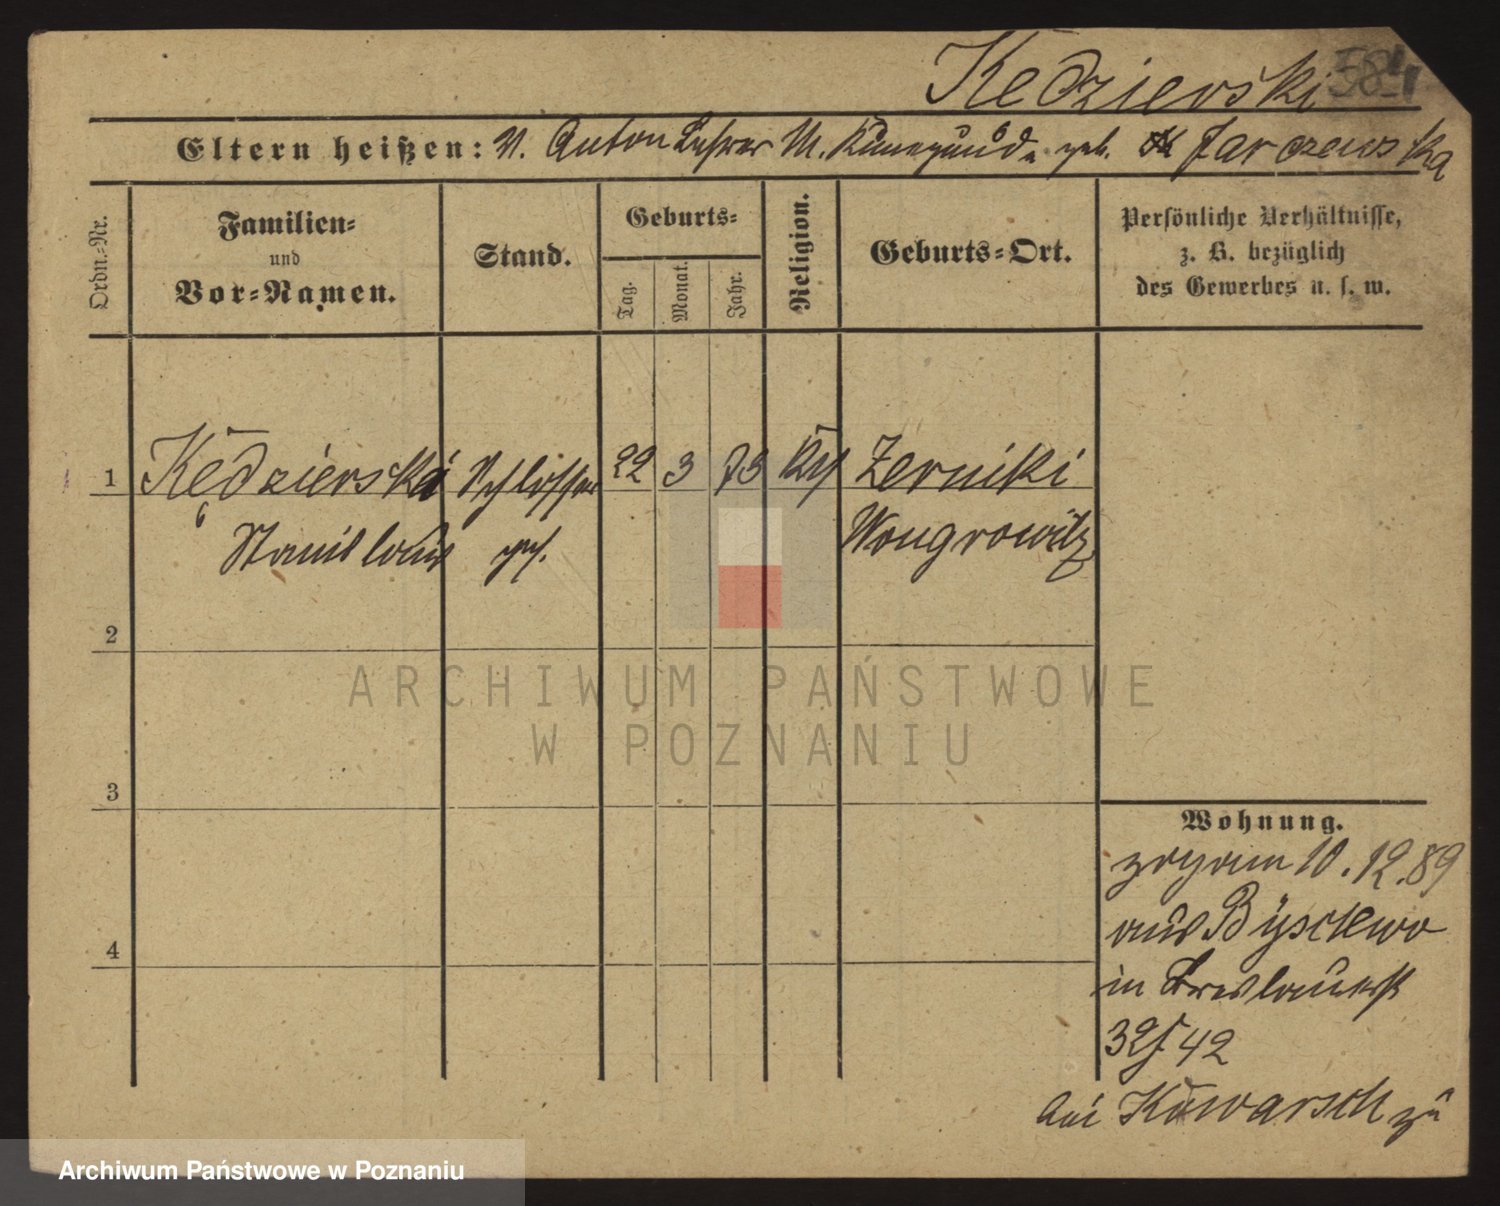 Kędzierski 584
Eltern heißen: V. Anton Lehrer M. Kunegunda geb. Jarczewska
Ordn.-Nr.
Familien- und Vor-Namen.
Stand.
Geburts-
Tag. Monat. Jahr.
Religion.
Geburts-Ort.
Persönliche Verhältnisse,
z. B. bezüglich
des Gewerbes u. s. w.
1 Kędzierski Schlosser 22 3 73 Kth Zerniki
Stanislaus Wongrowitz
2
3
4
Wohnung.
zog am 10.12.89
aus
in Breslauerst
32 42
bei zu
ARCHIWUM PAŃSTWOWE
W POZNANIU
Archiwum Państwowe w Poznaniu